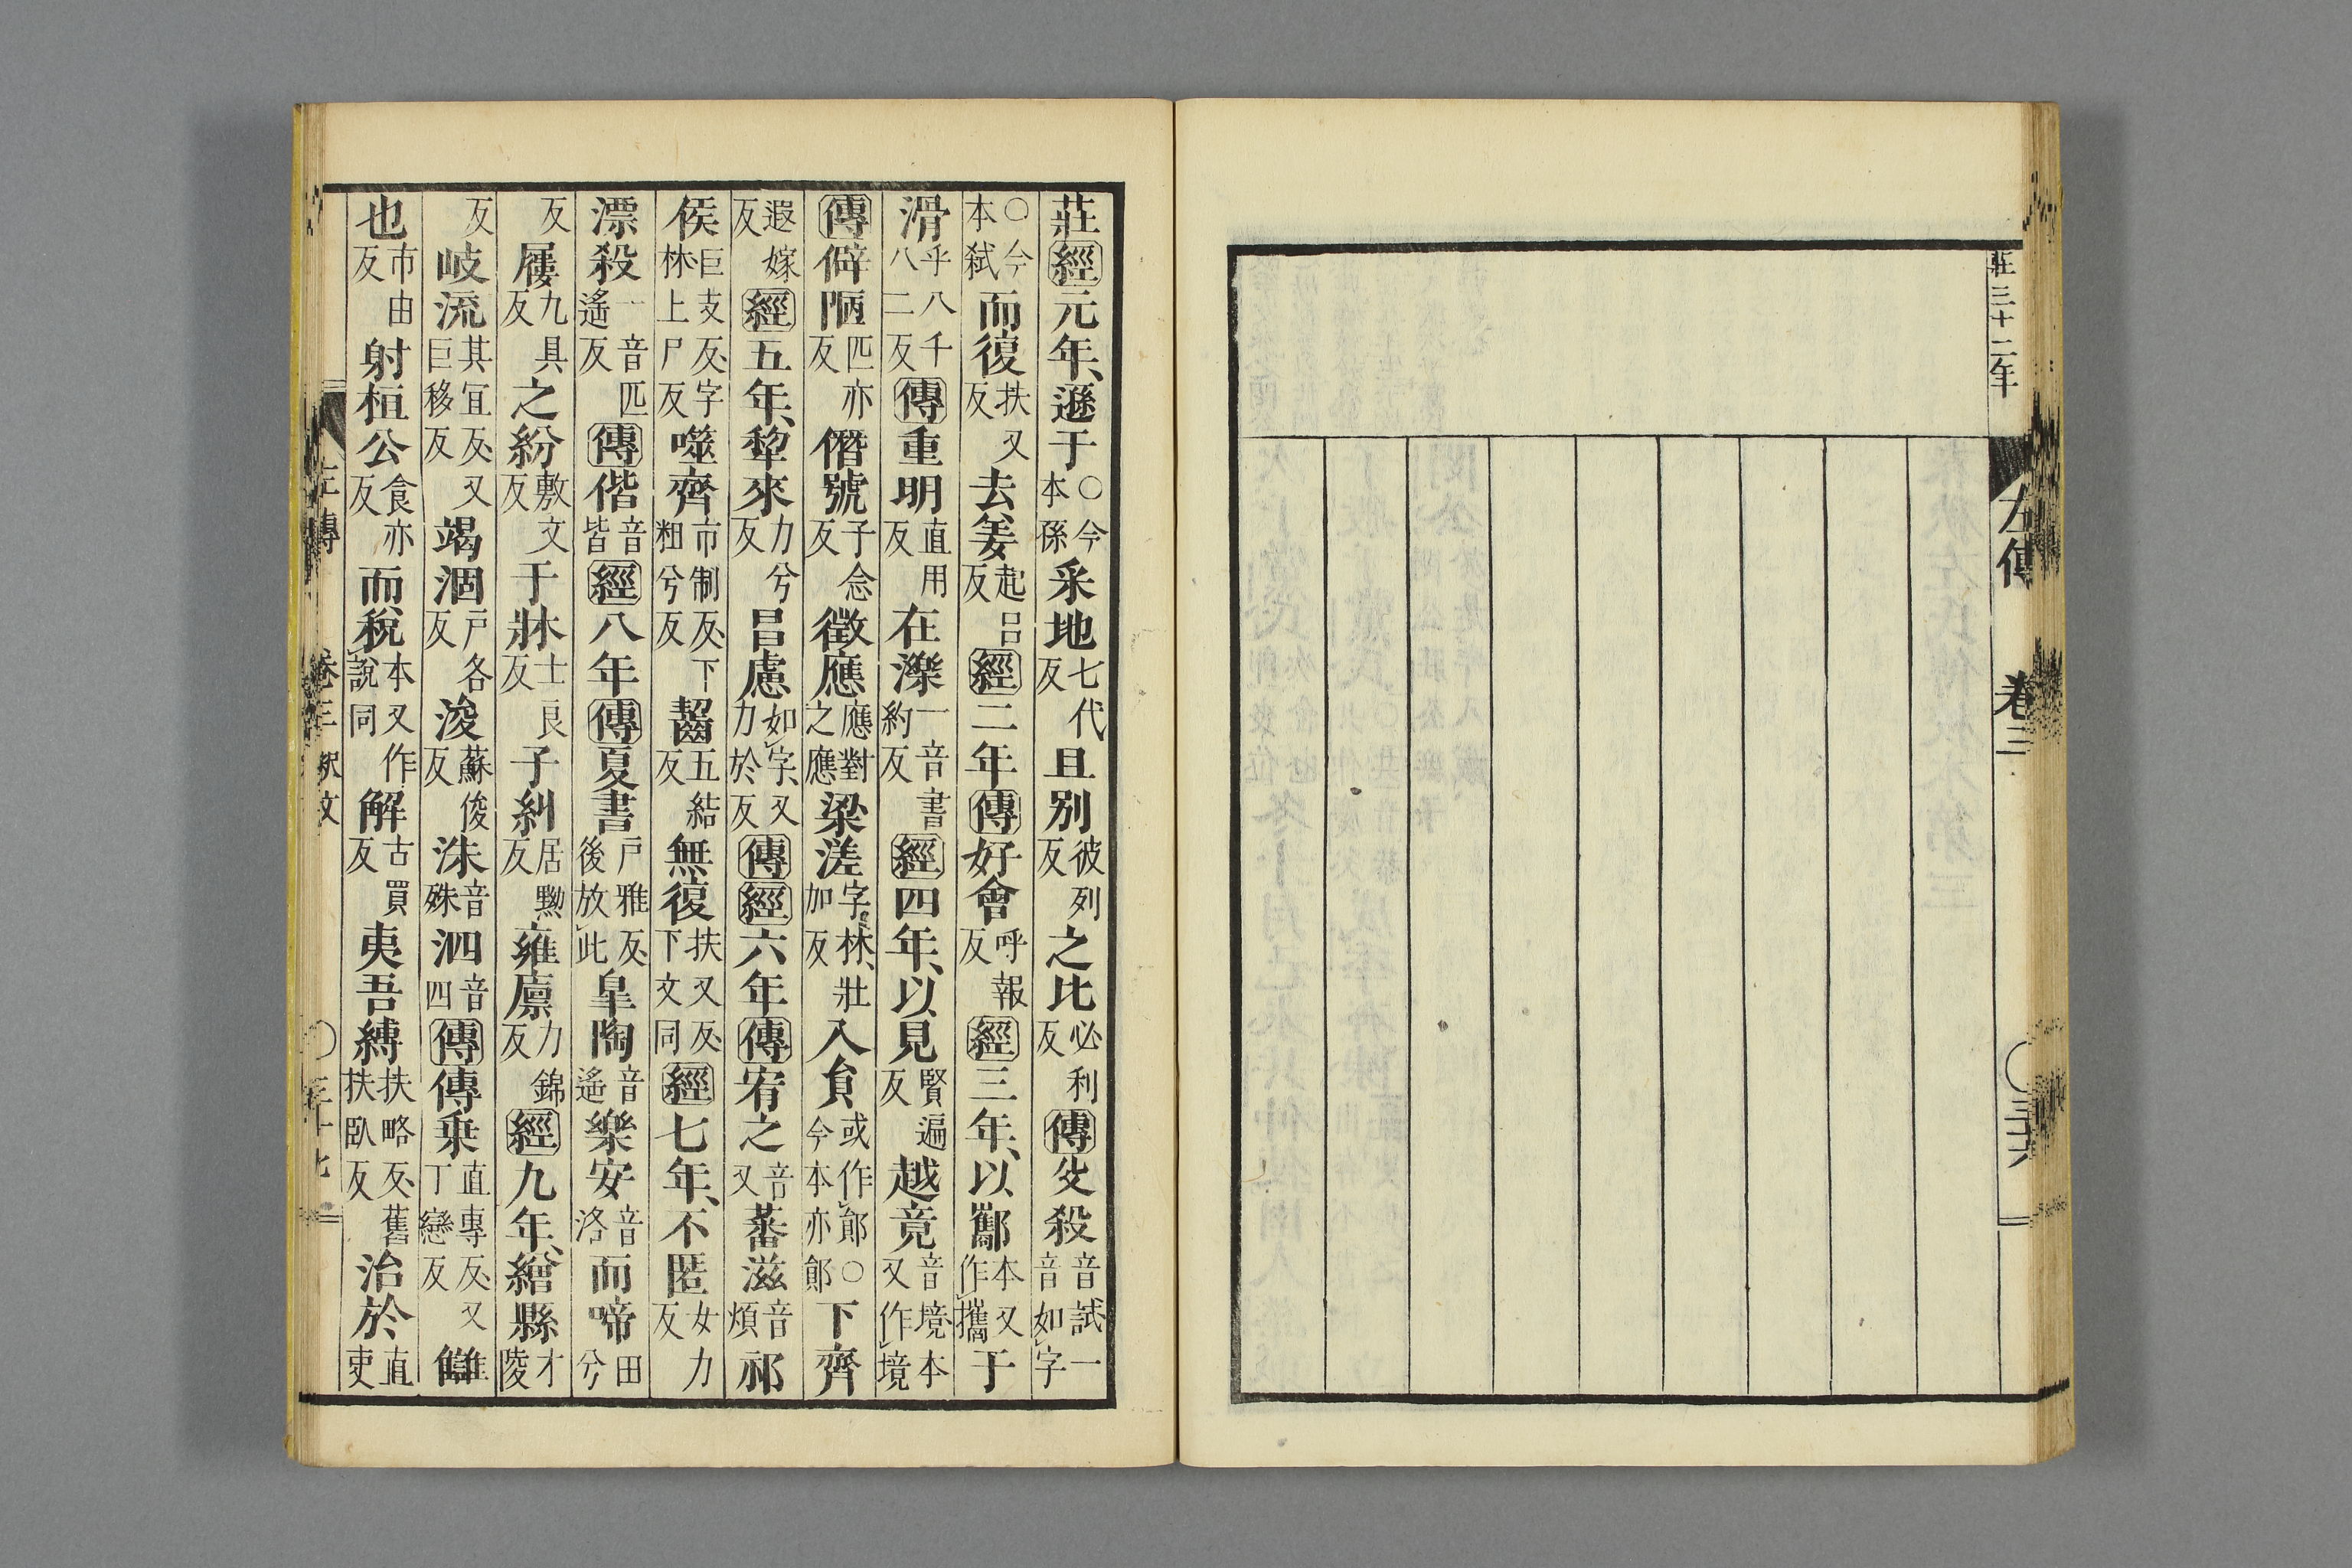 莊三十二年
左傳 卷三 三十六
莊經元年、遜于○今本孫采地七代反且別彼列反之比必利反傳攵殺音試一音如字
○今本弑而復扶又反去姜起呂反經二年傳好會呼報反經三年、以酅本又作攜于
滑乎八千八二反傳重明直用反在濼一音書約反經四年、以見賢遍反越竟音境本又作境
傳僻陋匹亦反僭號子念反徵應應對之應梁溠字林、壯加反入貟或作鄖○今本亦鄖下齊
遐嫁反經五年、犂來力兮反吕慮如字、又力於反傳經六年傳宥之音又蕃滋音煩祁
侯巨支反、字林上尸反噬齊市制反、下粗兮反齧五結反無復扶又反、下文同經七年、不匿女力反
漂殺一音匹遙反傳偕音皆經八年傳夏書戶雅反、後放此皐陶音遙樂安音洛而啼田兮
反屨九具反之紛敷文反于牀士良反子糾居黝反雍廪力錦反經九年、繒縣才陵
反岐流其宜反、又巨移反竭涸戶各反浚蘇俊反洙音殊泗音四傳傳乗直專反、又丁戀反讎
也市由反射桓公食亦反而税本又作說同解古買反夷吾縛扶略反、舊扶臥反治於直吏
左傳 卷三 釈文 三十七